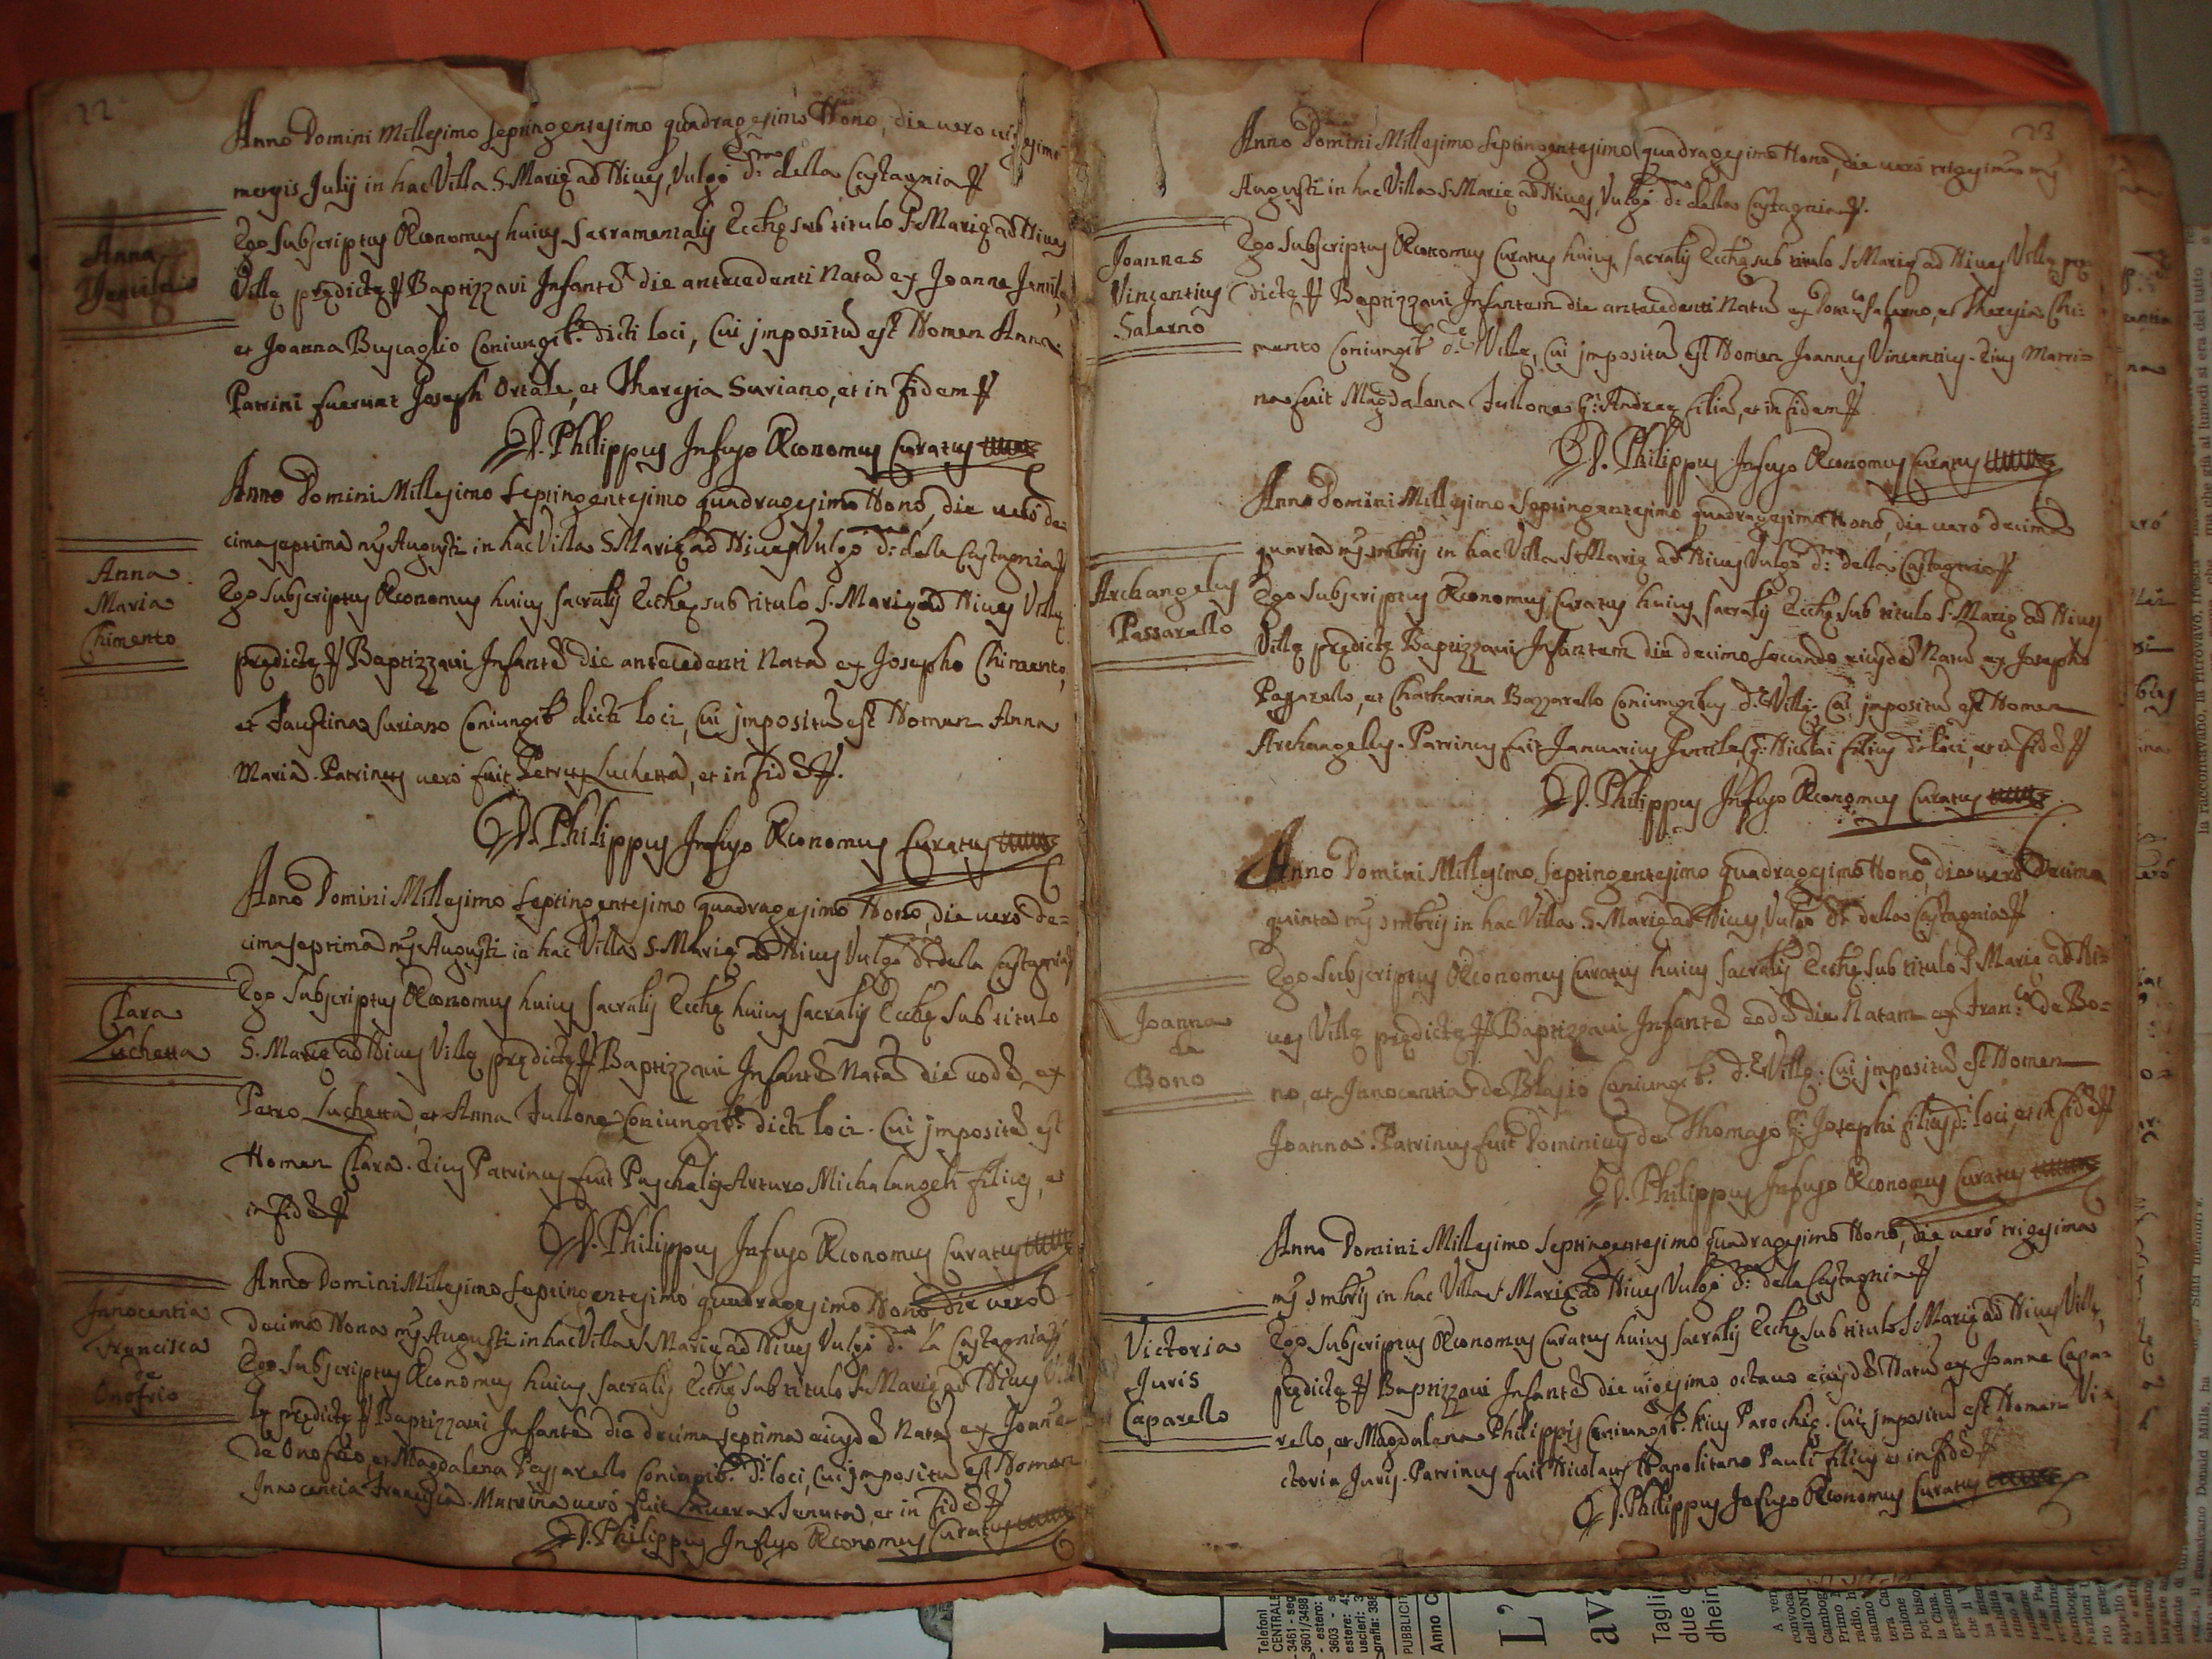 22
Anno Domini Millesimo septingentesimo quadragesimo Nono, die vero vigesimo
mensis Julij in hac Villa S. Marię ad Nives, Vulgò d.ᵐᵒ della Castagnia
Anna
Ego subscriptus Œconomus huius sacramentalis Ecclę sub titulo S. Marię ad Nives
Villę prędictę Baptizzavi Infantē die antecedenti Natā ex Joanne Jentile,
et Joanna Buscaglio Coniungib.ˢ dicti loci, Cui impositū est Nomen Anna.
Patrini fuerunt Joseph Ortale, et Theresia Suriano, et in fidem
D. Philippus Infuso Œconomus Curatus
Anna
Maria
Chimento
Anno Domini Millesimo septingentesimo quadragesimo Nono, die verò de=
cima septima mẽs Augusti in hac Villa S. Marię ad Nives Vulgò d.ᵃ della Castagnia
Ego subscriptus Œconomus huius sacralis Ecclę sub titulo S. Marię ad Nives Villę
prędictę Baptizzavi Infantē die antecedenti Natā ex Josepho Chimento,
et Faustina Suriano Coniungib dicti loci, Cui impositū est Nomen Anna
Maria. Patrinus verò fuit Petrus Luchetta, et in fidē.
D. Philippus Infuso Œconomus Curatus
Clara
Luchetta
Anno Domini Millesimo septingentesimo quadragesimo Nono, die verò de=
cima septima mẽs Augusti in hac Villa S. Marię ad Nives Vulgò d.ᵃ della Castagnia
Ego subscriptus Œconomus huius sacralis Ecclę huius sacralis Ecclę sub titulo
S. Marię ad Nives Villę prędictę Baptizzavi Infantē Natā die eodē ex
Petro Luchetta, et Anna Fullone Coniungib.ˢ dicti loci. Cui impositū est
Nomen Clara. Eius Patrinus fuit Paschalis Arturo Michalangeli filius, et
in fidē
D. Philippus Infuso Œconomus Curatus
Innocentia
Francisca
de
Onofrio
Anno Domini Millesimo septingentesimo quadragesimo Nono, die verò
decima Nona mẽs Augusti in hac Villa S. Marię ad Nives Vulgò d.ᵃ la Castagnia
Ego subscriptus Œconomus huius sacralis Ecclę sub titulo S. Marię ad Nives Vil
lę prędictę Baptizzavi Infantē die decima septima eiusdē Natā ex Joanne
de Onofrio, et Magdalena Passarello Coniugib.ˢ d.ⁱ loci, Cui impositū est Nomen
Innocentia Francisca. Matrina verò fuit et in fidē
D. Philippus Infuso Œconomus Curatus
23
Anno Domini Millesimo septingentesimo quadragesimo Nono, die verò trigesima mẽs
Augusti in hac Villa S. Marię ad Nives, Vulgò d.ᵃ della Castagnia.
Joannes
Vincentius
Salerno
Ego subscriptus Œconomus Curatus huius sacralis Ecclę sub titulo S. Marię ad Nives Villę prę
dictę Baptizzavi Infantem die antecedenti Natū ex Dom.ᶜᵒ Salerno, et Theresia Chi=
mento Coniungib d.ᵉ Villę, Cui impositū est Nomen Joannes Vincentius. Eius Matri=
na fuit Magdalena Fullone q: Andreę filia, et in fidem
D. Philippus Infuso Œconomus Curatus
Archangelus
Passarello
Anno Domini Millesimo septingentesimo quadragesimo Nono, die verò decima
quarta mẽs 7mbris in hac Villa S. Marię ad Nives Vulgò d.ᵃ della Castagnia
Ego subscriptus Œconomus Curatus huius sacralis Ecclę sub titulo S. Marię ad Nives
Villę prędictę Baptizzavi Infantem die decimo secundo eiusdē Natū ex Josepho
Passarello, et Chatharina Bazzarello Coniungibus d.ᵉ Villę. Cui impositū est Nomen
Archangelus. Patrinus fuit Januarius Gentile q: Nicolai filius d.ⁱ loci, et in fidē
D. Philippus Infuso Œconomus Curatus
Joanna
de
Bono
Anno Domini Millesimo septingentesimo quadragesimo Nono, die verò Decima
quinta mẽs 7mbris in hac Villa S. Marię ad Nives, Vulgò d.ᵃ della Castagnia
Ego subscriptus Œconomus Curatus huius sacralis Ecclę sub titulo S. Marię ad Ni=
ves Villę prędictę Baptizzavi Infantē eodē die Natam ex Fran.ᶜᵒ de Bo=
no, et Innocentia de Blasio Coniungib.ˢ d.ᵉ Villę. Cui impositū est Nomen
Joanna. Patrinus fuit Dominicus de Thomaso q: Josephi filius d.ⁱ loci, et in fidē
D. Philippus Infuso Œconomus Curatus
Victoria
Juris
Caparello
Anno Domini Millesimo septingentesimo quadragesimo Nono, die verò trigesima
mẽs 7mbris in hac Villa S. Marię ad Nives Vulgò d.ᵃ della Castagnia
Ego subscriptus Œconomus Curatus huius sacralis Ecclę sub titulo S. Marię ad Nives Villę,
prędictę Baptizzavi Infantē die vigesimo octavo eiusdē Natā ex Joanne Capa=
rello, et Magdalena Philippis Coniungib. huius Parochię. Cui impositū est Nomen Vi=
ctoria Juris. Patrinus fuit Nicolaus Napolitano Pauli filius et in fidē
D. Philippus Infuso Œconomus Curatus
Telefoni
CENTRALE
PUBBLICIT
Anno C
L'
av
Tagli
due
dhein